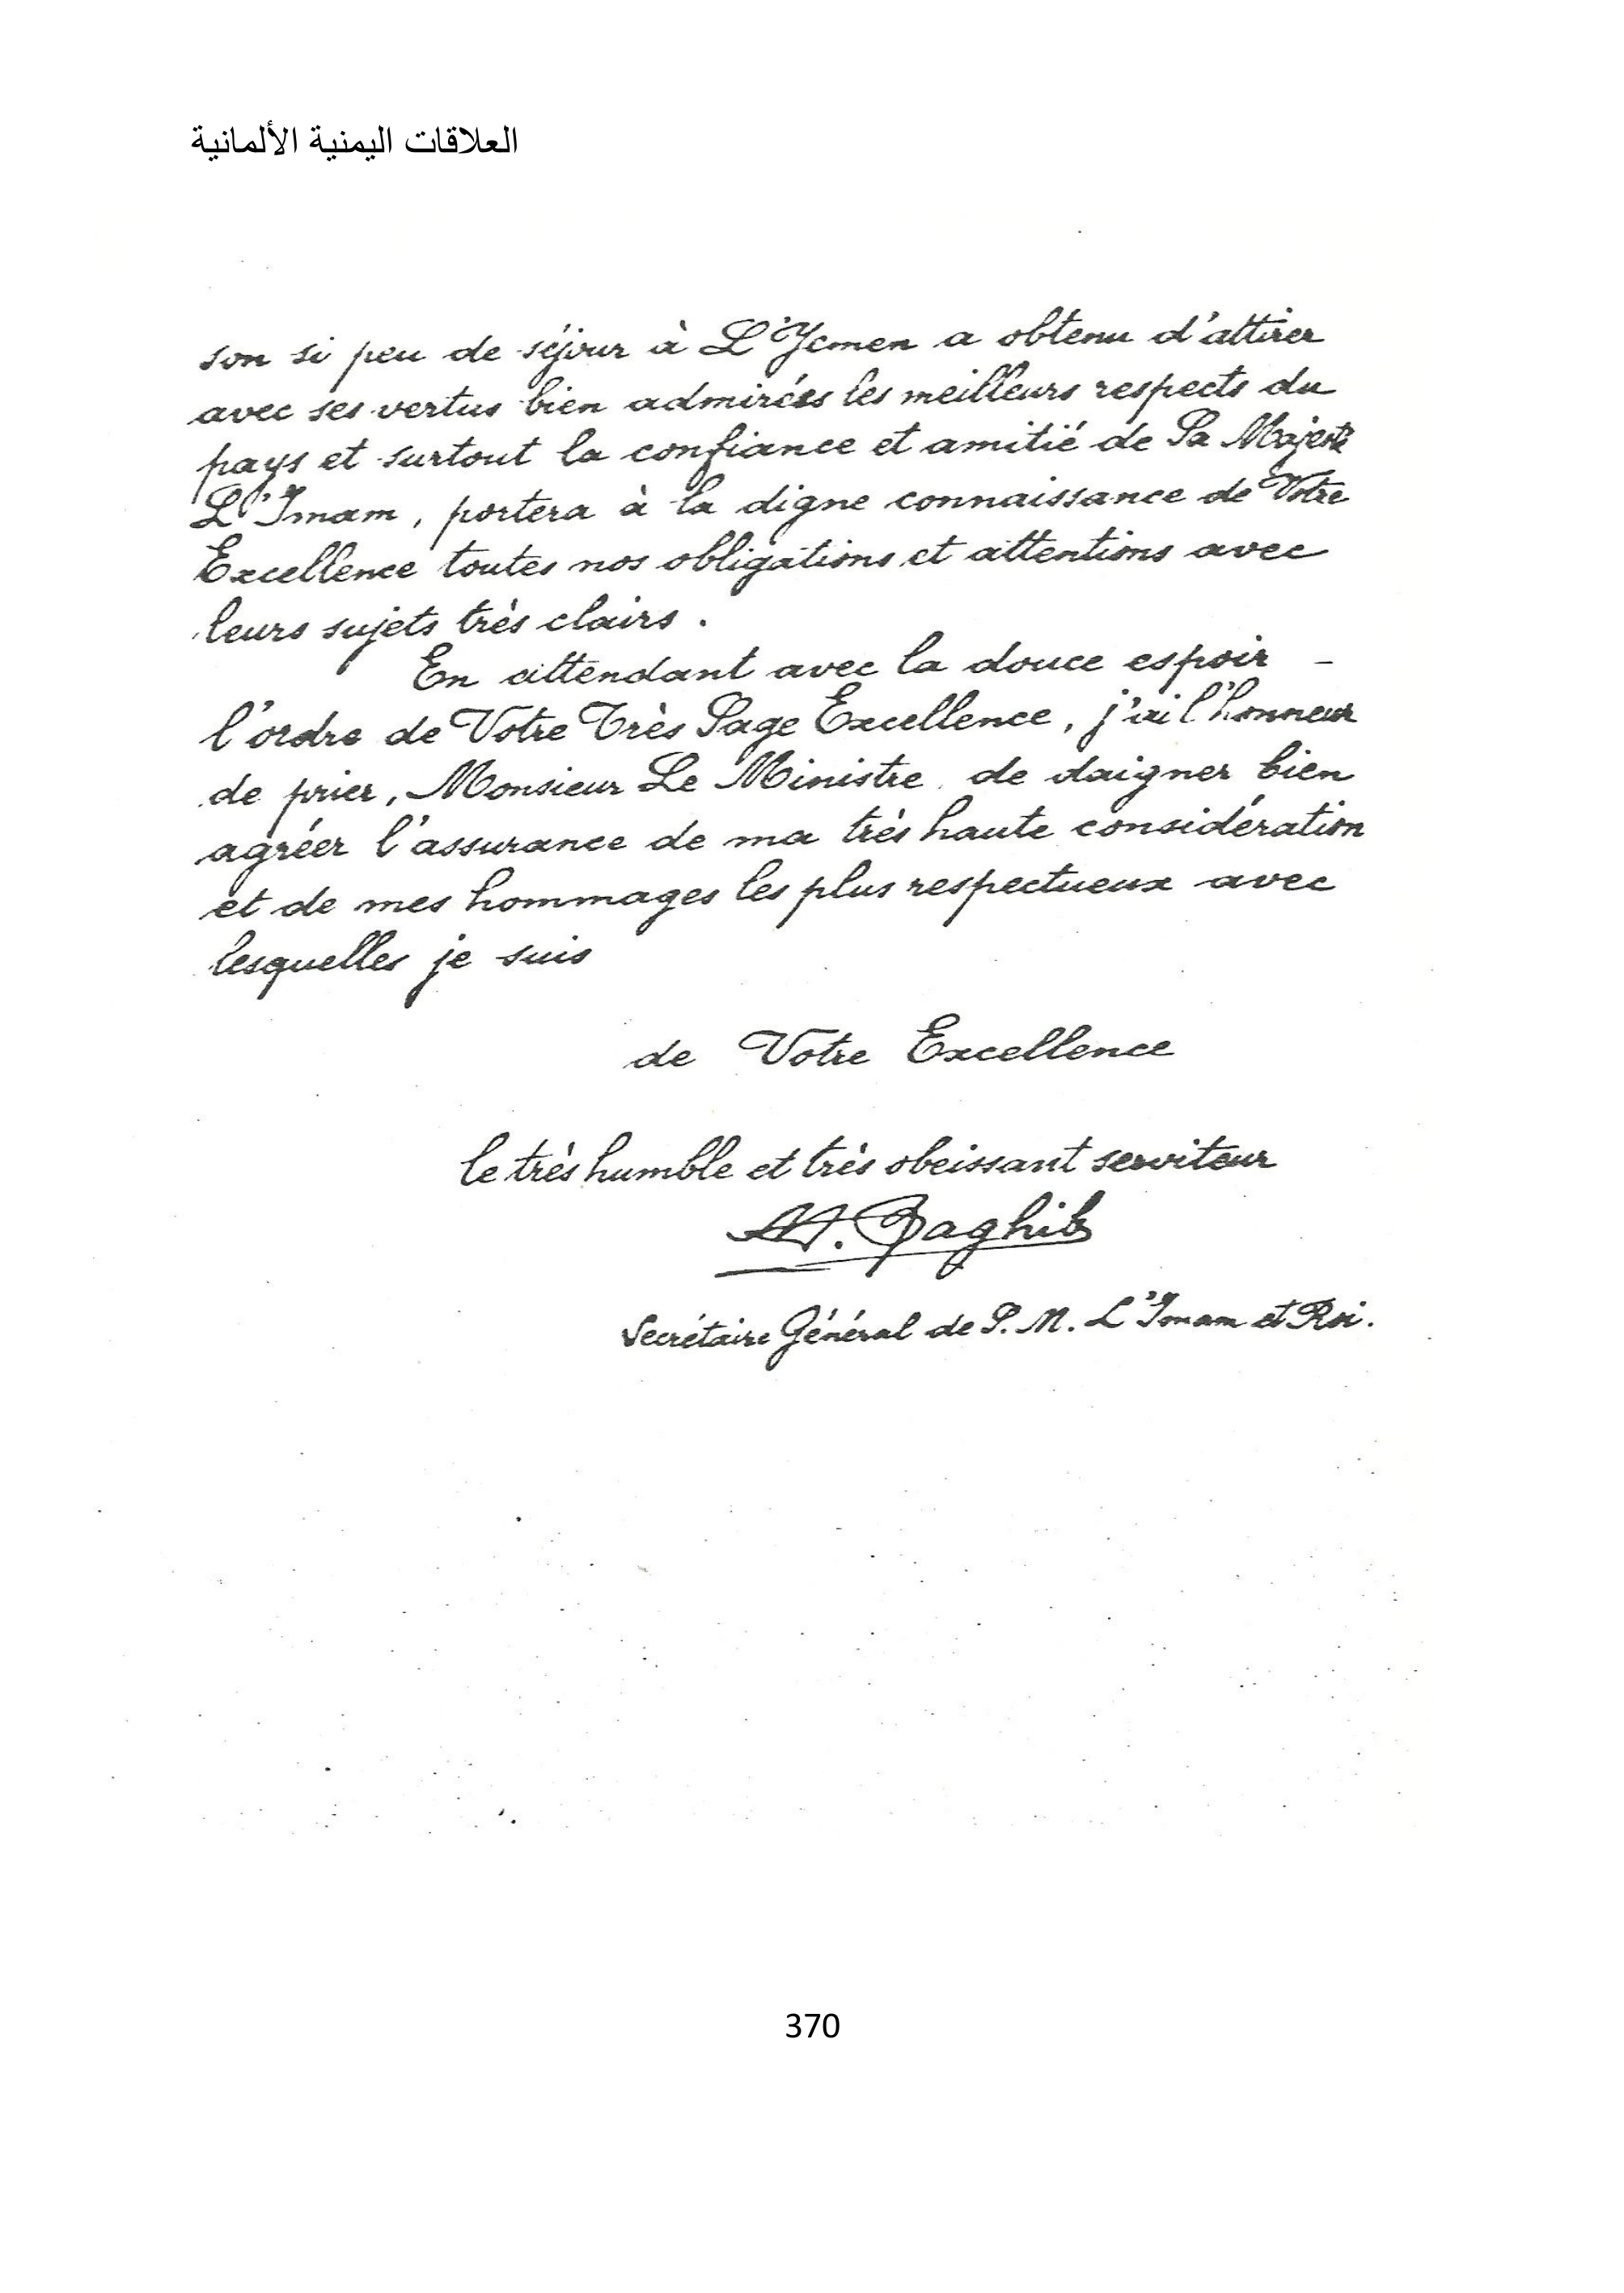 العلاقات اليمنية الألمانية
son si peu de séjour à L'Yemen a obtenu d'attirer
avec ses vertus bien admirées les meilleurs respects du
pays et surtout la confiance et amitié de Sa Majesté
L'Imam, portera à la digne connaissance de Votre
Excellence toutes nos obligations et attentions avec
leurs sujets très clairs.
En attendant avec la douce espoir -
l'ordre de Votre Très Sage Excellence, j'ai l'honneur
de prier, Monsieur Le Ministre de daigner bien
agréer l'assurance de ma très haute considération
et de mes hommages les plus respectueux avec
lesquelles je suis
de Votre Excellence
le très humble et très obeissant serviteur
M. Raghib
Secrétaire Général de S. M. L'Imam et Roi.
370